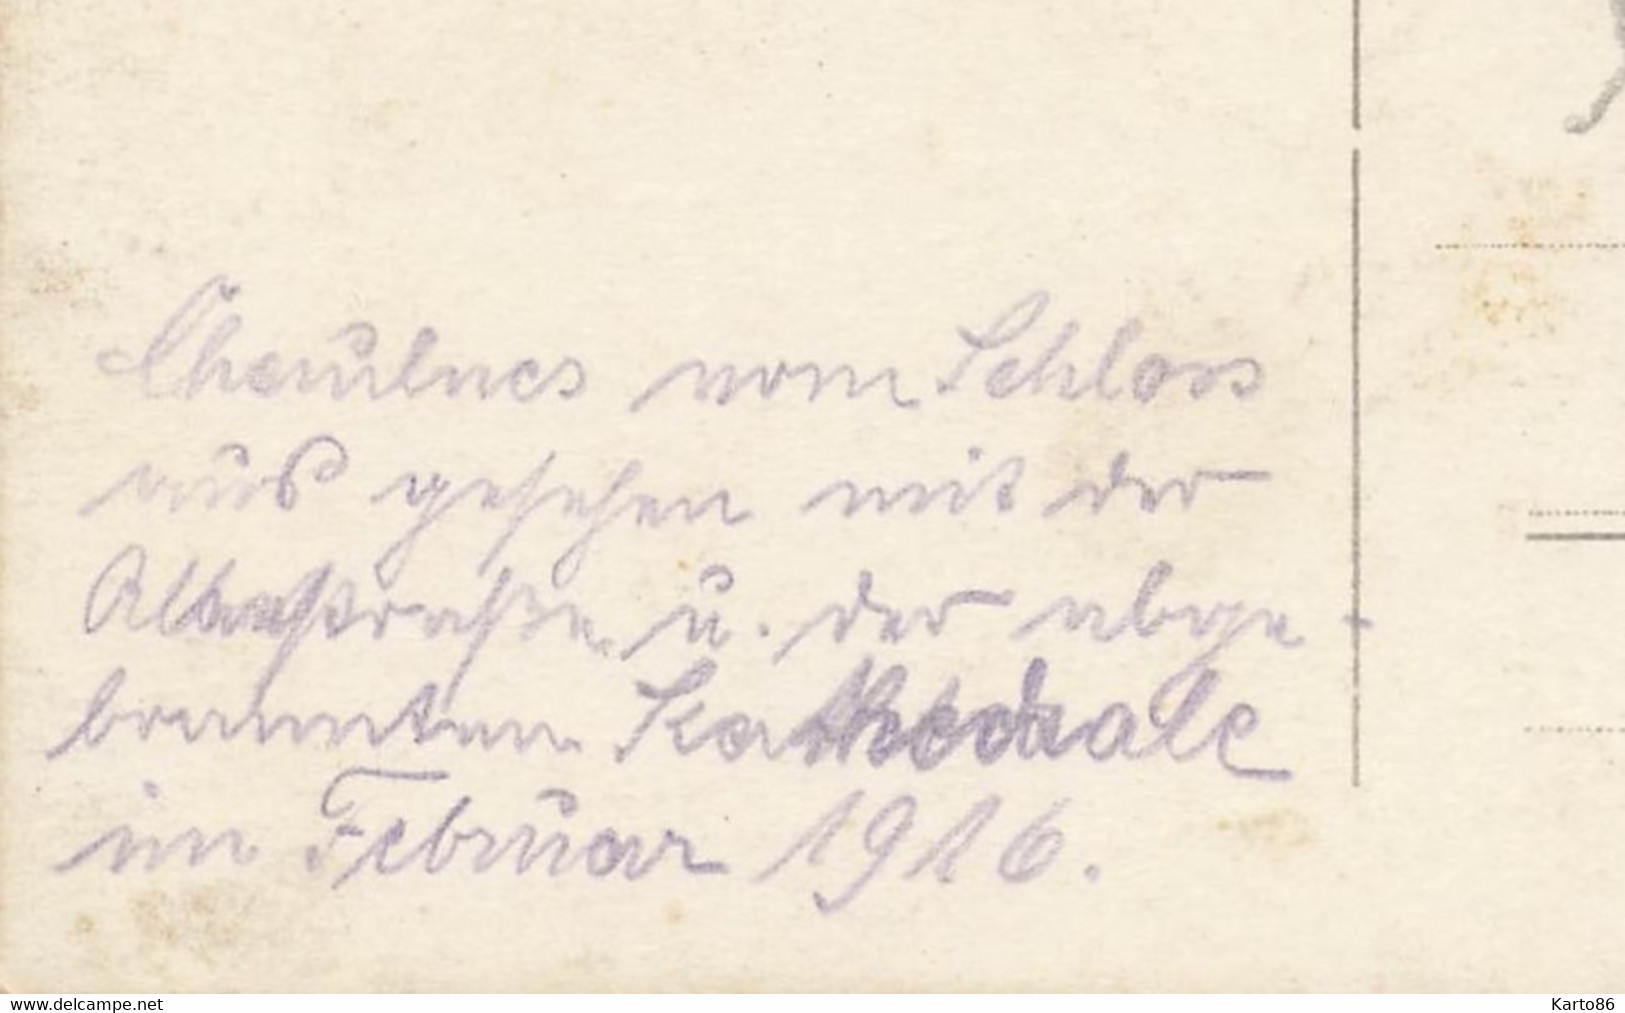 Chaulnes vom Schloss
aus gesehen mit der
straße u. der abge-
brannten Kathedrale
im Februar 1916.
www.delcampe.net
Karto86